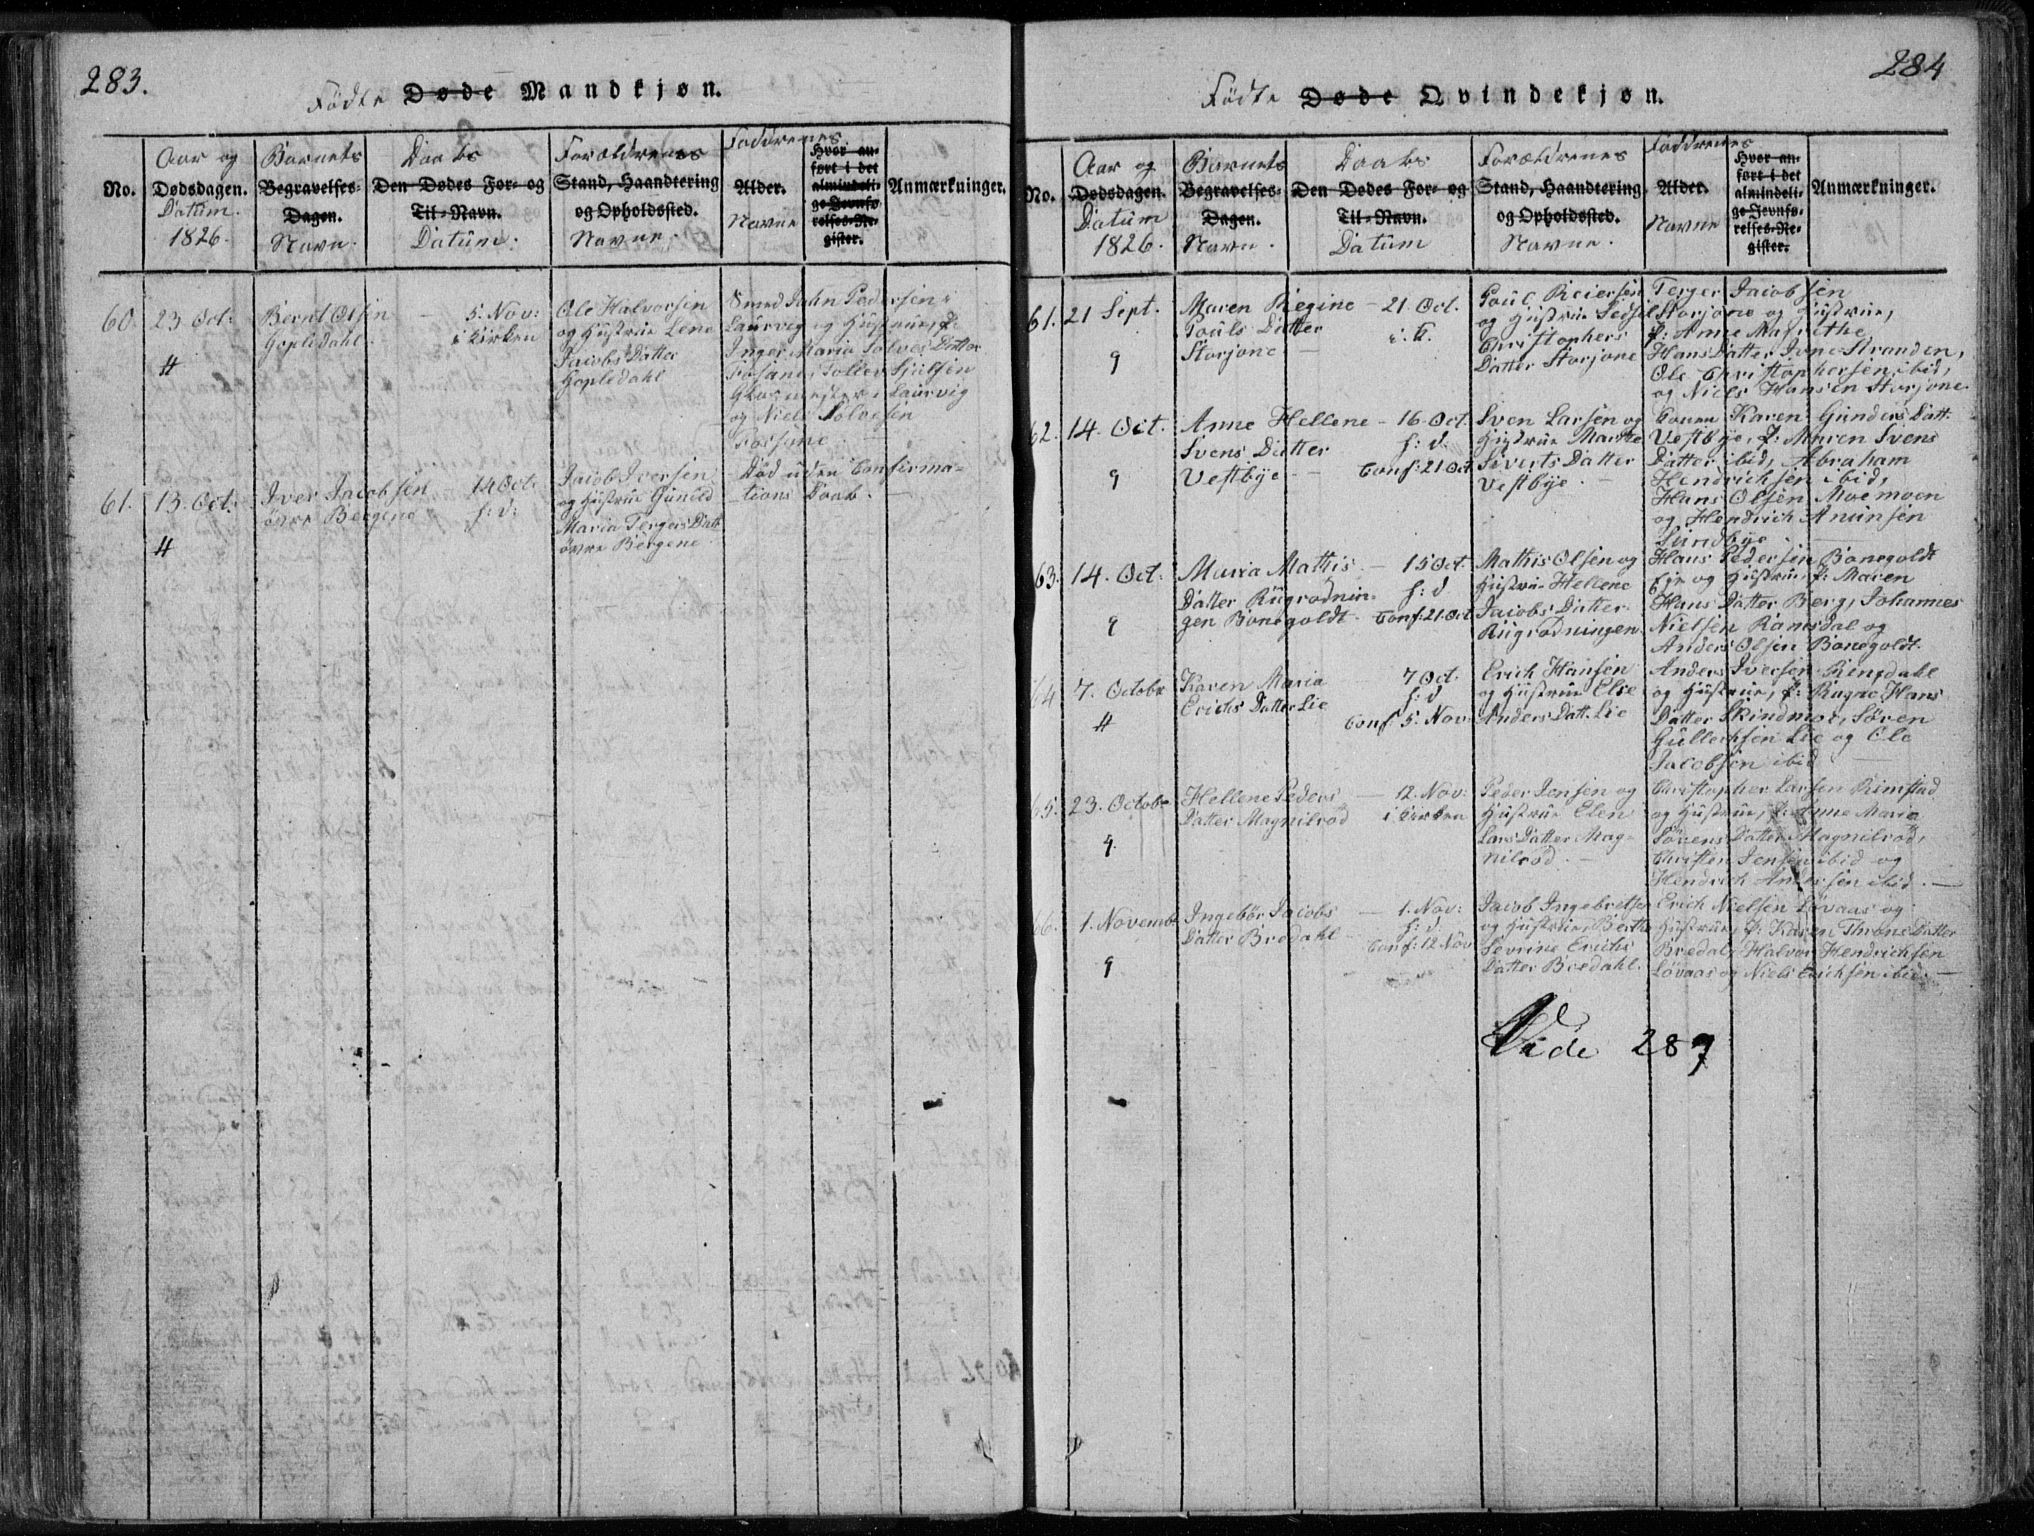 283.
Födte Døde Mandkjøn.
No.
Aar og
Dødsdagen.
Datum.
1826.
Barnets
Begravelses-
Dagen.
Navn.
Daabs
Den Dødes For- og
Til-Navn.
Datum.
Forældrenes
Stand, Haandtering
og Opholdssted.
Navne.
Faddrenes
Alder.
Navne
Hvor an-
ført i det
almindeli-
ge Jevnfø-
relses-Re-
gister.
Anmærkninger.
60.
23 Oct:
#
Bernt Olsen
Gopledahl.
5. Nov:
i Kirken
Ole Halvorsen
og Hustrue Lene
Jacobs Datter
Hopledahl
Smed John Pedersen
Laurvig og Hustrue, P:
Inger Maria Solves Datter
Fosane, Tollev
Glasmester i Laurvig
og Niels Solvesen
Fossane.
61.
13. Oct.
#
Iver Jacobsen
övre Bergene
14 Oct.
h: d:
Jacob Iversen
og Hustrue Gunild
Maria Tergers Datt:
övre Bergene.
Död uden Confirma-
tions Daab.
284
Födte Døde Qvindekjøn.
No.
Aar og
Dødsdagen.
Datum
1826.
Barnets
Begravelses-
Dagen.
Navn.
Daabs
Den Dødes For- og
Til-Navn.
Datum
Forældrenes
Stand, Haandtering
og Opholdssted.
Navne.
Faddrenes
Alder.
Navne
Hvor an-
ført i det
almindeli-
ge Jevnfø-
relses-Re-
gister.
Anmærkninger.
61.
21 Sept.
9
Maren Regine
Pouls Datter
Storjone
21. Oct.
i: K.
Poul Reiersen
og Hustrue Sidsel
Christophers
Datter Storjone
Terger Jacobsen
Storjone og Hustrue,
P: Anne Magrethe
Hans Datter Stranden,
Ole Christophersen ibid,
og Niels Hansen Storjone.
62.
14. Oct.
9
Anne Hellene
Svens Datter
Vestbye
16. Oct.
h: d.
Conf: 21 Oct
Sven Larsen og
Hustrue Marthe
Siverts Datter
Vestbye.
Karen Gunders Datt:
Vestbye, P: Maren Svens
Datter ibid, Abraham
Hendrichsen ibid,
Hans Olsen Moemoen
og Hendrich Anunsen
Sundbye
63.
14. Oct.
9
Maria Mathis
Datter Rugrodnin-
gen Bonegoldt
15 Oct.
h: d
Conf: 21. Oct
Mathis Olsen og
Hustrue Hellene
Jacobs Datter
Rugrodningen.
Hans Pedersen Bonegoldt
Eje og Hustrue, P: Maren
Hans Datter Berg, Johannes
Nielsen Ramsdal og
Anders Olsen Bonegoldt.
64
7. Octobr
#
Karen Maria
Erichs Datter Lie
7 Oct.
h: d
Conf 5. Nov:
Erich Hansen
og Hustrue Else
Anders Datt. Lie
Anders Iversen Ringdahl
og Hustrue, P: Hans
Datter Skindmoe, Søren
Gullichsen Lie og Ole
Jacobsen ibid
65.
23. Octobr
9.
Hellene Peders
Datter Magnilröd
12. Nov:
i Kirken
Peder Jensen og
Hustrue Elen
Lars Datter Mag-
nilröd.
Christopher Larsen Rimstad
og Hustrue, P: Anne Maria
Sörens Datter Magnilröd,
Christen Jensen ibid og
Hendrich Andersen ibid.
66.
1. Novemb.
9
Ingebör Jacobs
Datter Bredahl
1. Nov:
h: d.
Conf: 12 Nov
Jacob Ingebretsen
og Hustrue, Berthe
Sevrine Erichs
Datter Bredahl.
Erich Nielsen Lövaas og
Hustrue, P: Karen Throns Datter
Bredal, Halvor Hendrichsen
Lövaas og Niels Erichsen ibid.
Vide 287